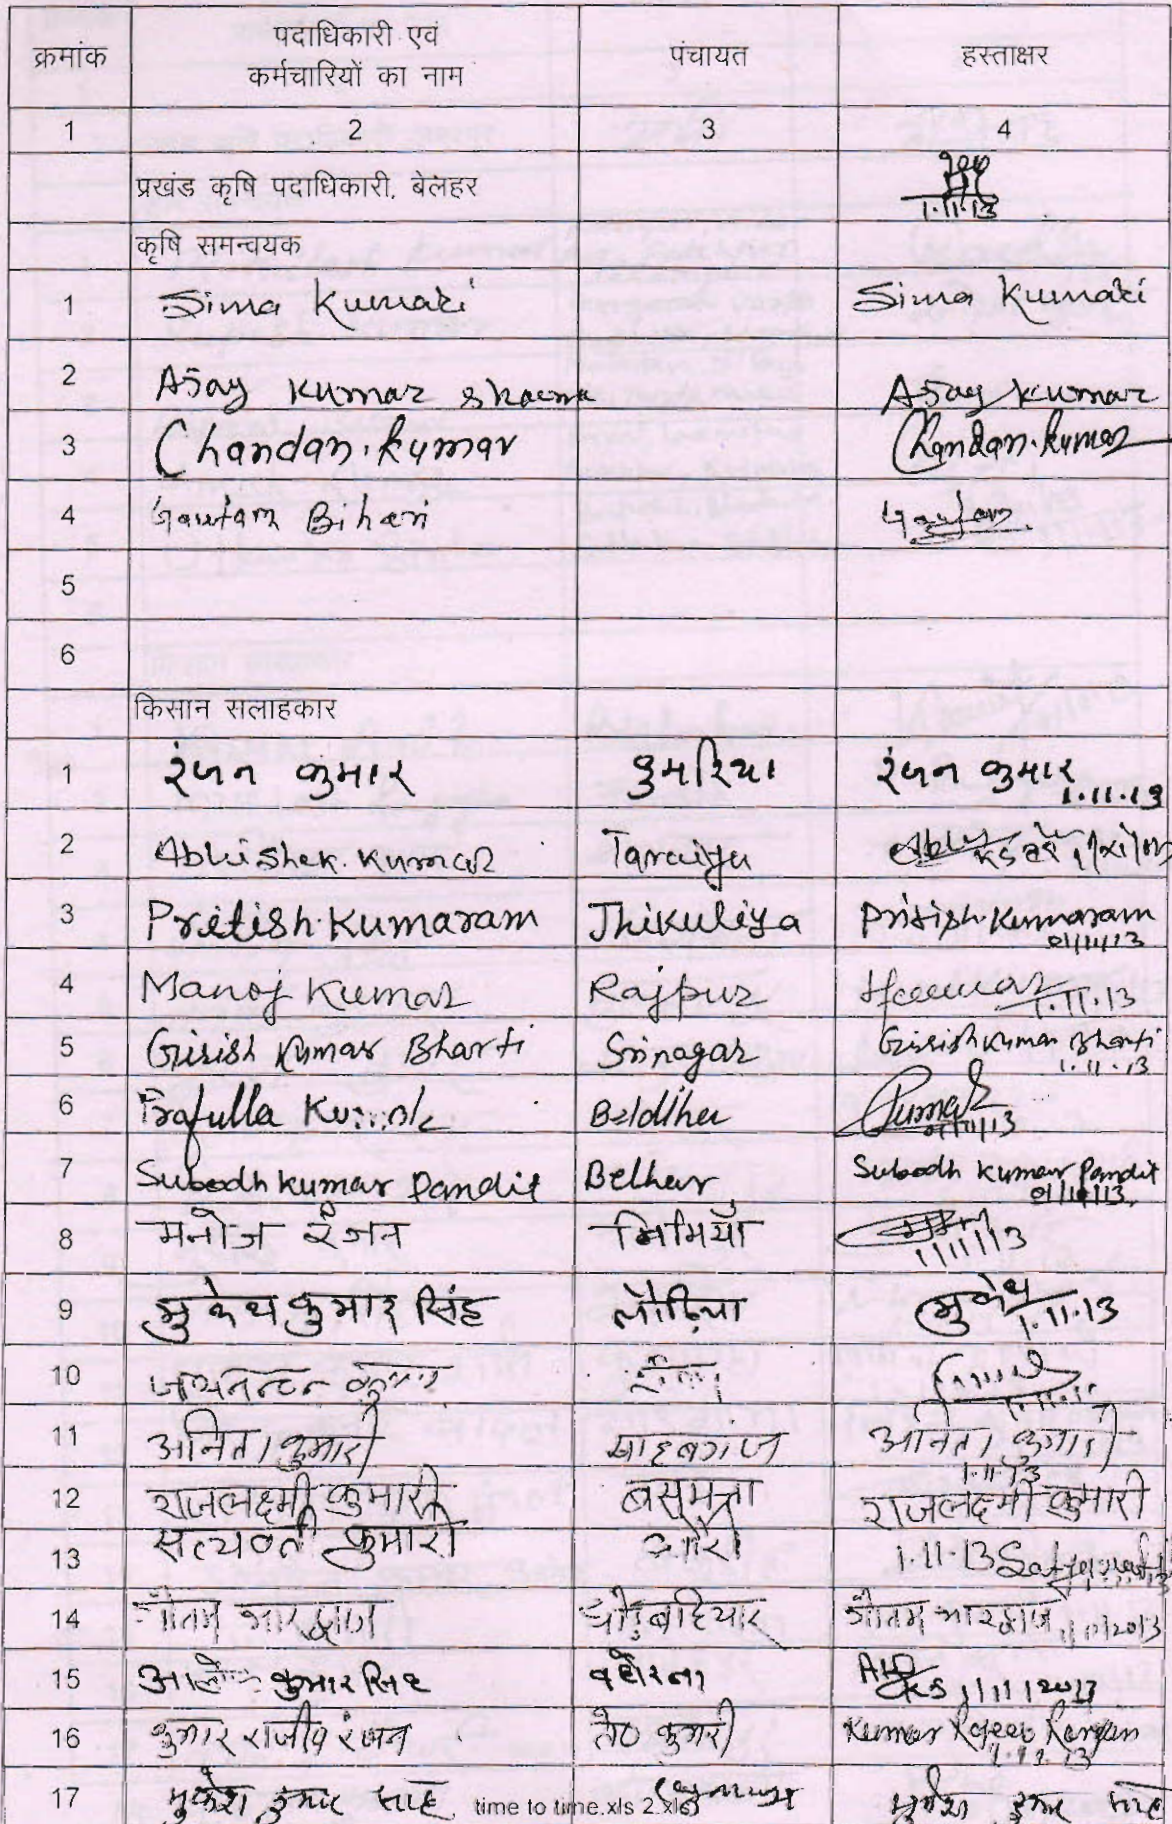 क्रमांक पदाधिकारी एवं कर्मचारियों का नाम पंचायत हस्ताक्षर
1 2 3 4
प्रखंड कृषि पदाधिकारी, बेलहर 1.11.13
कृषि समन्वयक
1 Sima Kumari Sima Kumari
2 Ajay Kumar Sharma Ajay Kumar
3 Chandan.kumar Chandan.kumar
4 Gautam Bihari Gautam
5
6
किसान सलाहकार
1 रंजन कुमार कुमरिया रंजन कुमार 1.11.13
2 Abhishek.Kumar Taraiya
3 Pritish.Kumaram Jhikuliya Pritish.Kumaram 01/11/13
4 Manoj Kumar Rajpur 1.11.13
5 Girish Kumar Bharti Srinagar Girish Kumar Bharti 1.11.13
6 Prafulla Beldiha Kumar 01/11/13
7 Subodh kumar Pandit Belhar Subodh kumar Pandit 01/11/13
8 मनोज रंजन निमियाँ 1/11/13
9 मुकेश कुमार सिंह लौढ़िया मुकेश 1.11.13
10 कुमार
11 अनिता कुमारी साहबगंज अनिता कुमारी 1.11.13
12 राजलक्ष्मी कुमारी बसमत्ता राजलक्ष्मी कुमारी
13 सत्यवती कुमारी 1.11.13
14 गौतम भारद्वाज घोड़बहियार गौतम भारद्वाज
15 कुमार सिंह 1/11/2013
16 कुमार राजीव रंजन Kumar Rajeev Ranjan 1.11.13
17 मुकेश कुमार साह मुकेश कुमार साह
time to time.xls 2.xls